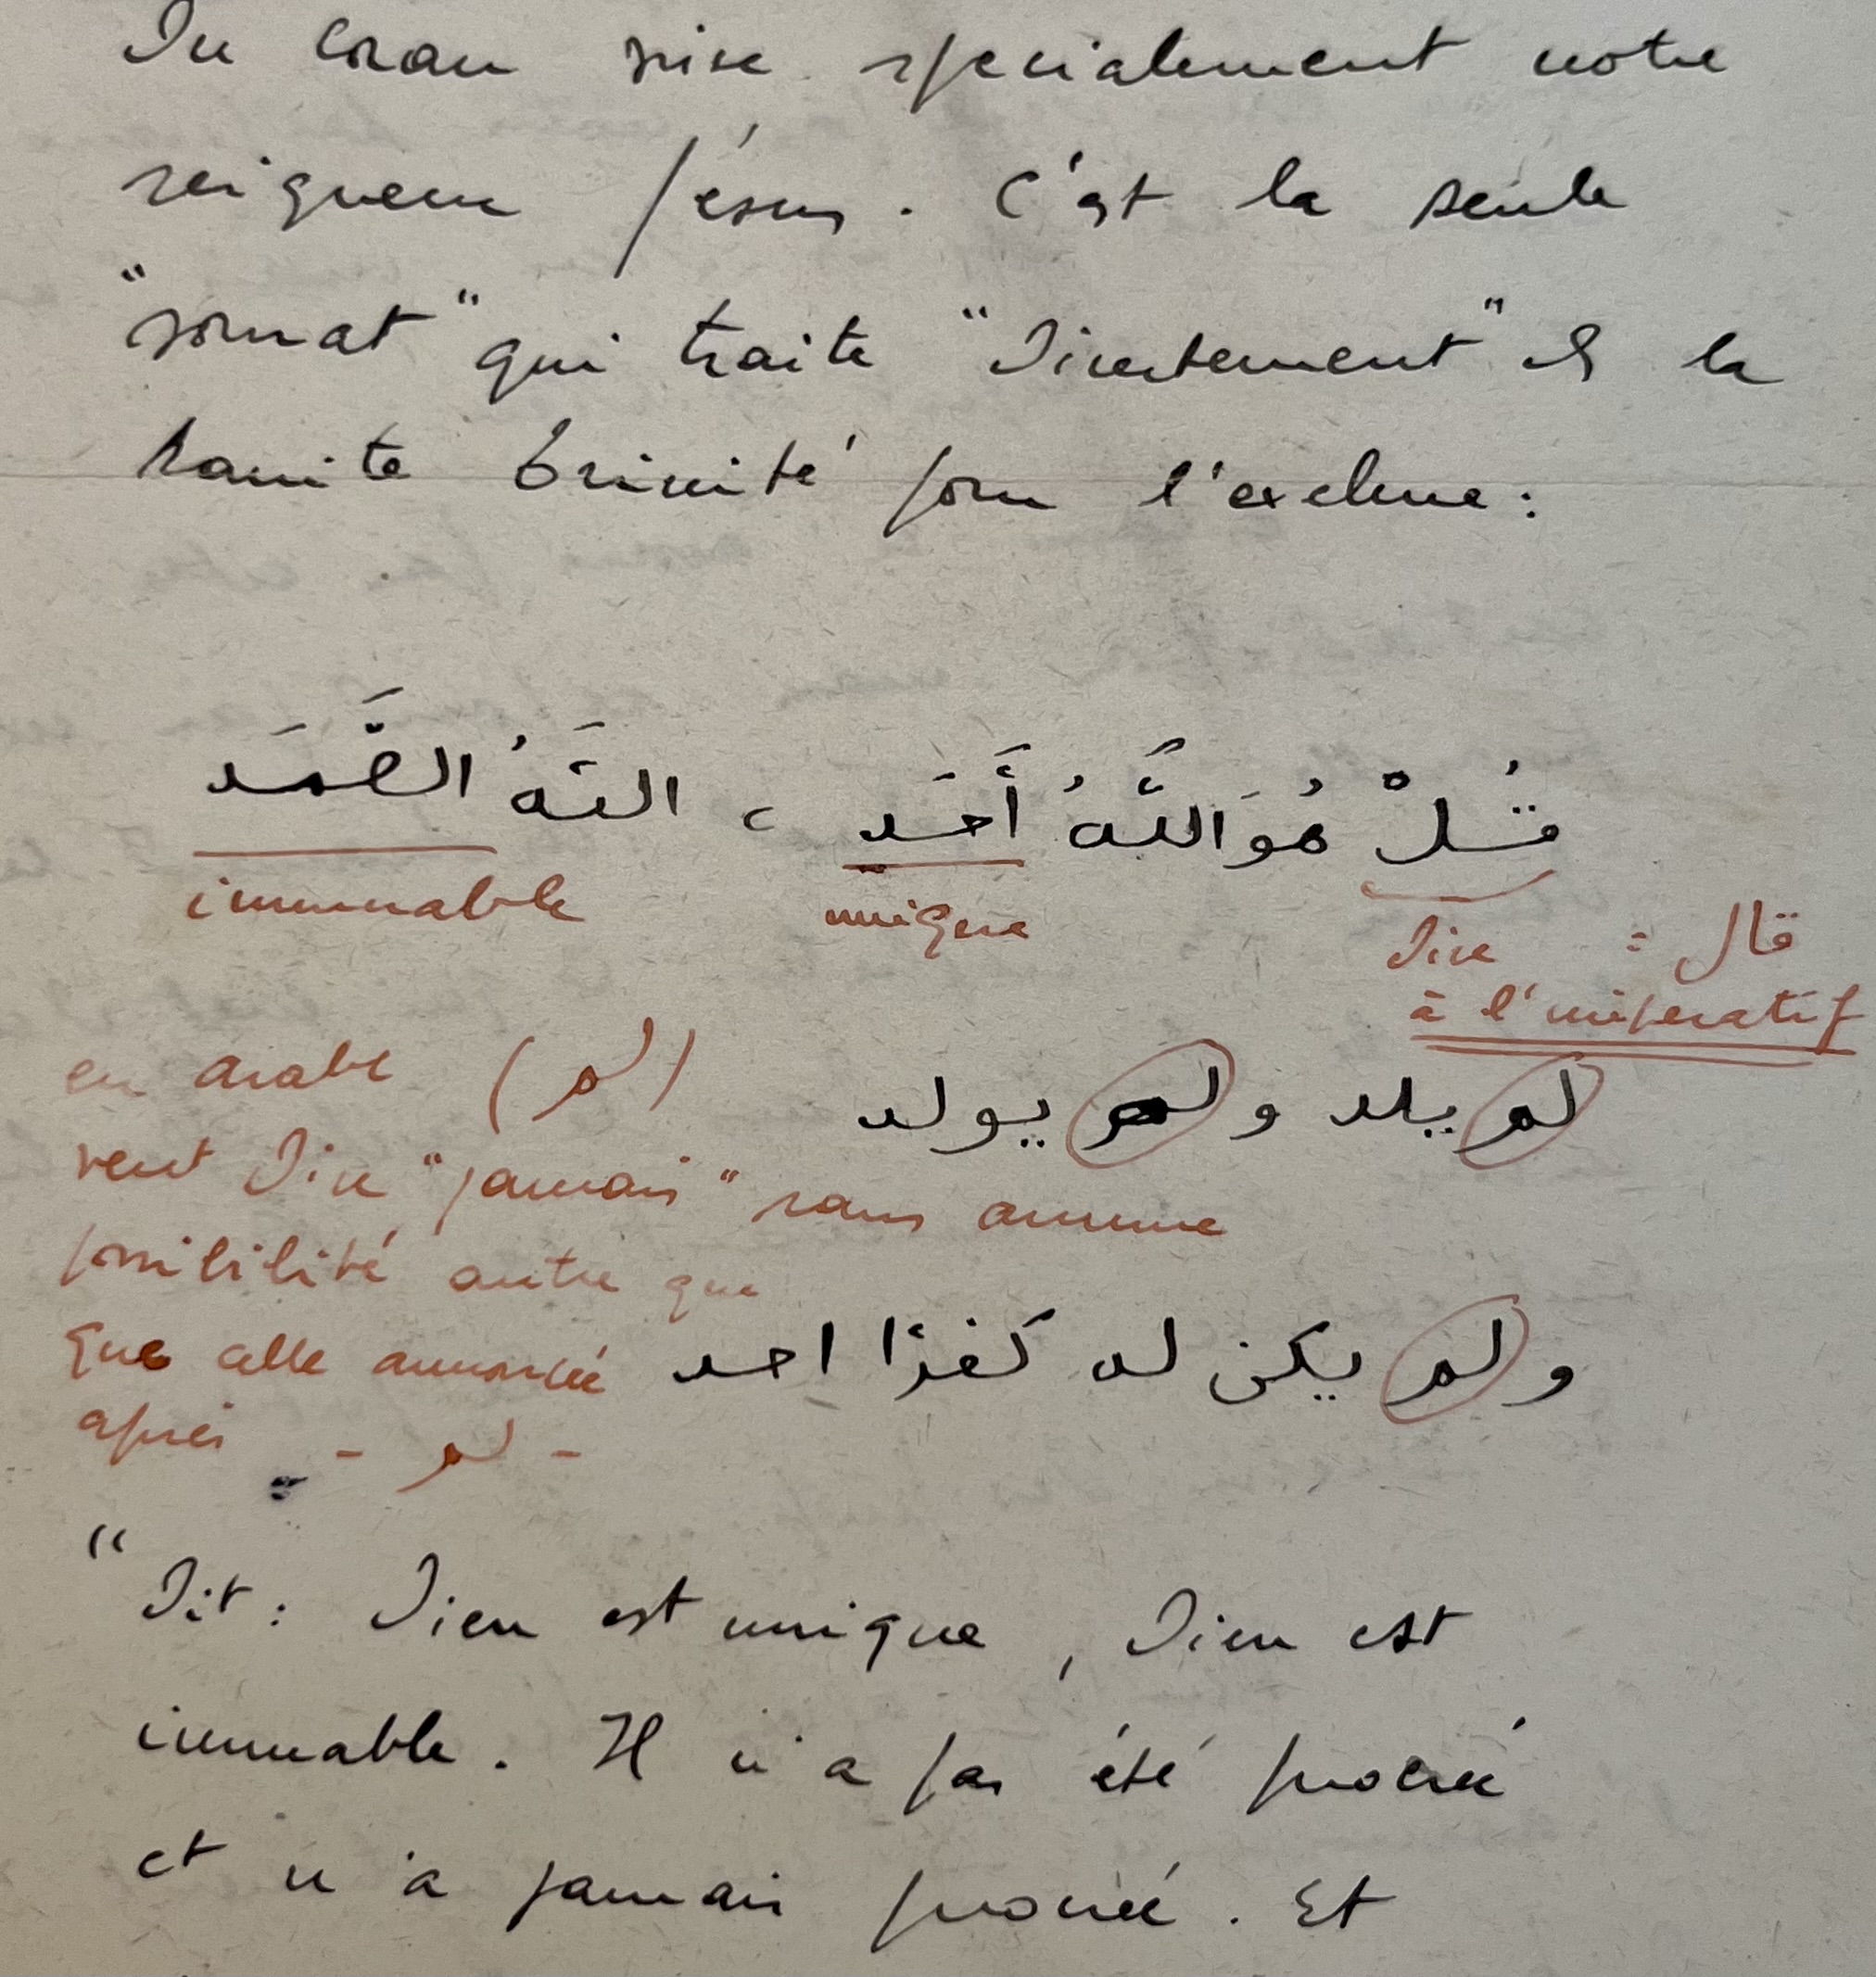 du coran vise spécialement notre
seigneur Jésus. C'est la seule
"sourat" qui traite "directement" de la
sainte trinité pour l'exclure :
قُلْ هُوَ اللَّهُ أَحَد ، اللَّهُ الصَّمَد
immuable
unique
dire : قال
à l'impératif
لم يلد و لم يولد
en arabe (لم)
veut dire "jamais" sans aucune
possibilité autre que
que celle annoncée
après - لم -
و لم يكن له كفؤًا احد
"Dit : Dieu est unique, Dieu est
immuable. Il n'a pas été procréé
et n'a jamais procréé. Et